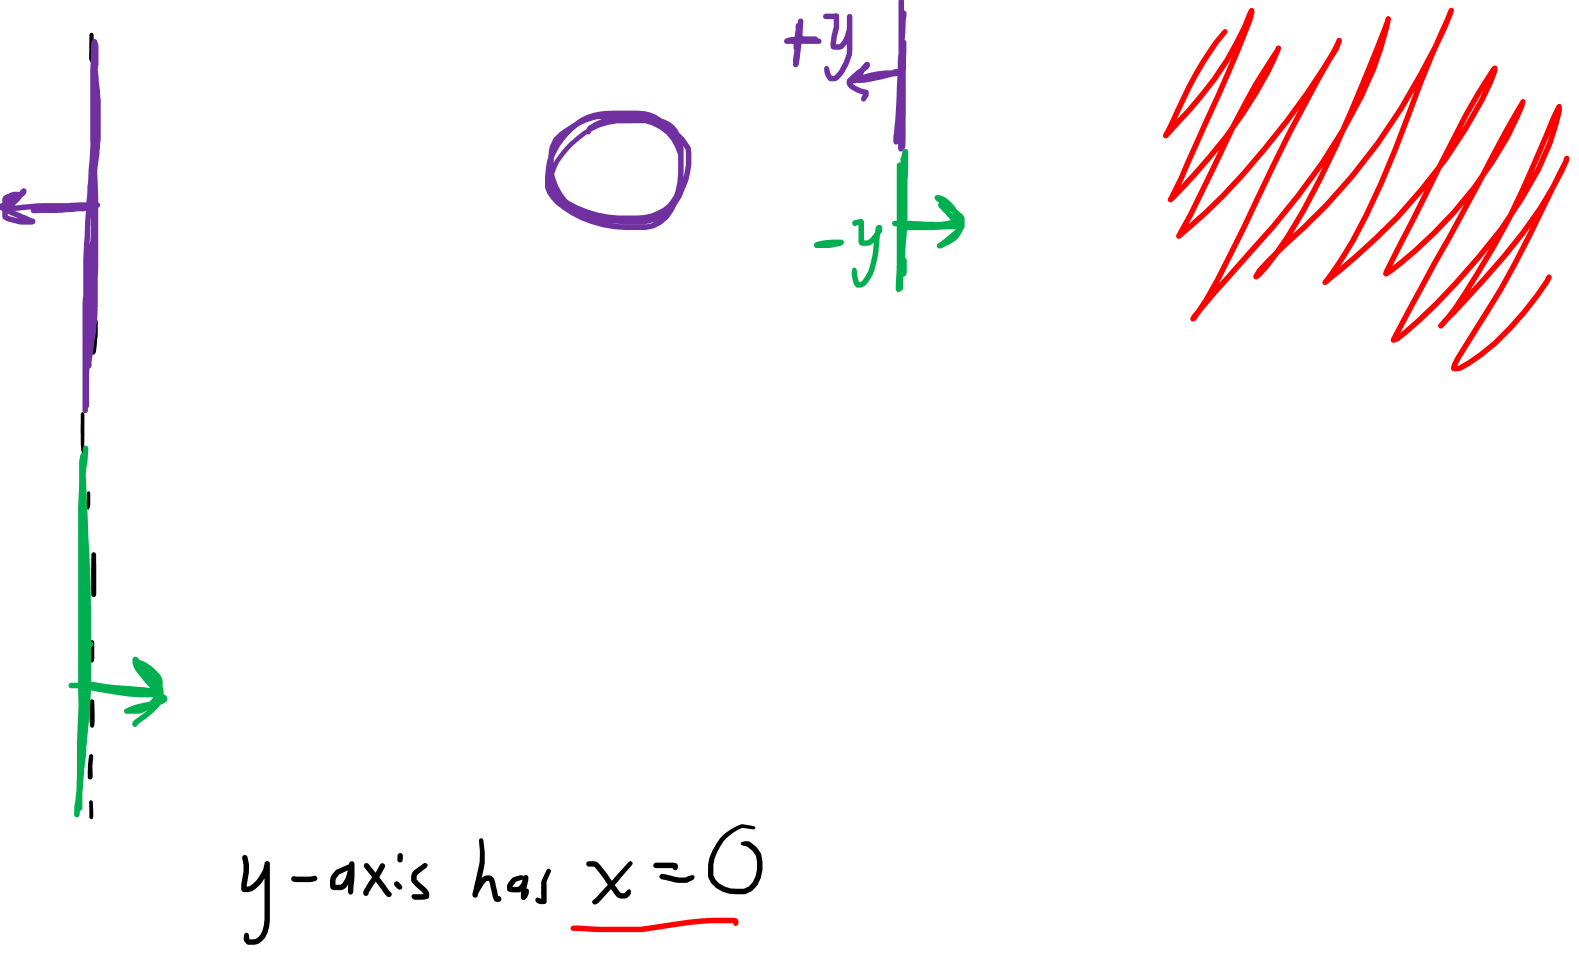 +y
-y
y-axis has x=0